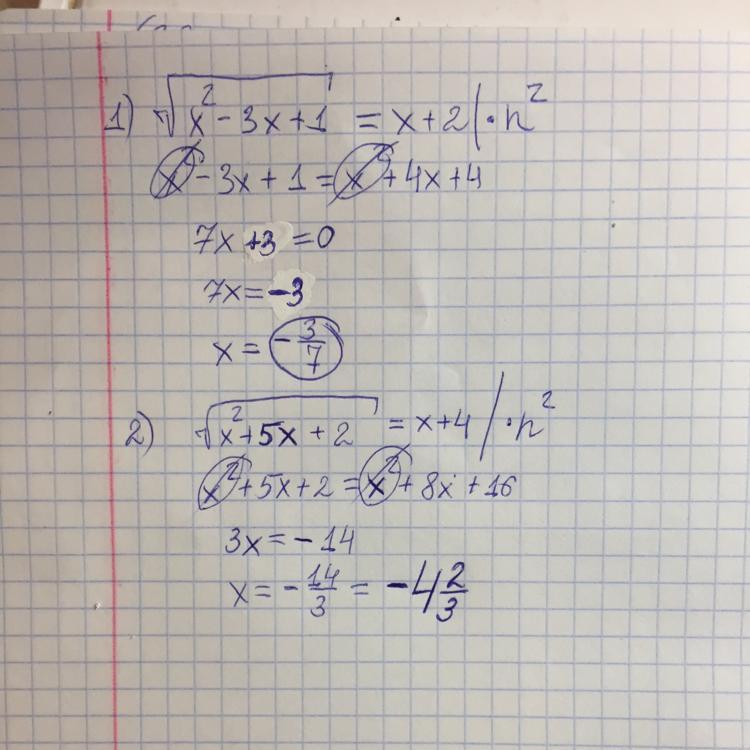 1) √(x² - 3x + 1) = x + 2 | · n²
x² - 3x + 1 = x² + 4x + 4
7x + 3 = 0
7x = -3
x = -3/7
2) √(x² + 5x + 2) = x + 4 / · n²
x² + 5x + 2 = x² + 8x + 16
3x = -14
x = -14/3 = -4 2/3